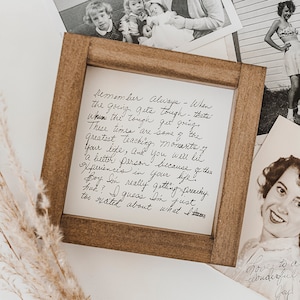 Remember Always - When
the going gets tough - that's
when the tough get going.
These times are some of the
greatest teaching moments of
your life, and you will be
a better person because of the
experiences in your life.
Boy I'm really getting
huh? I guess I'm just
too much about what I
going to
wonderful